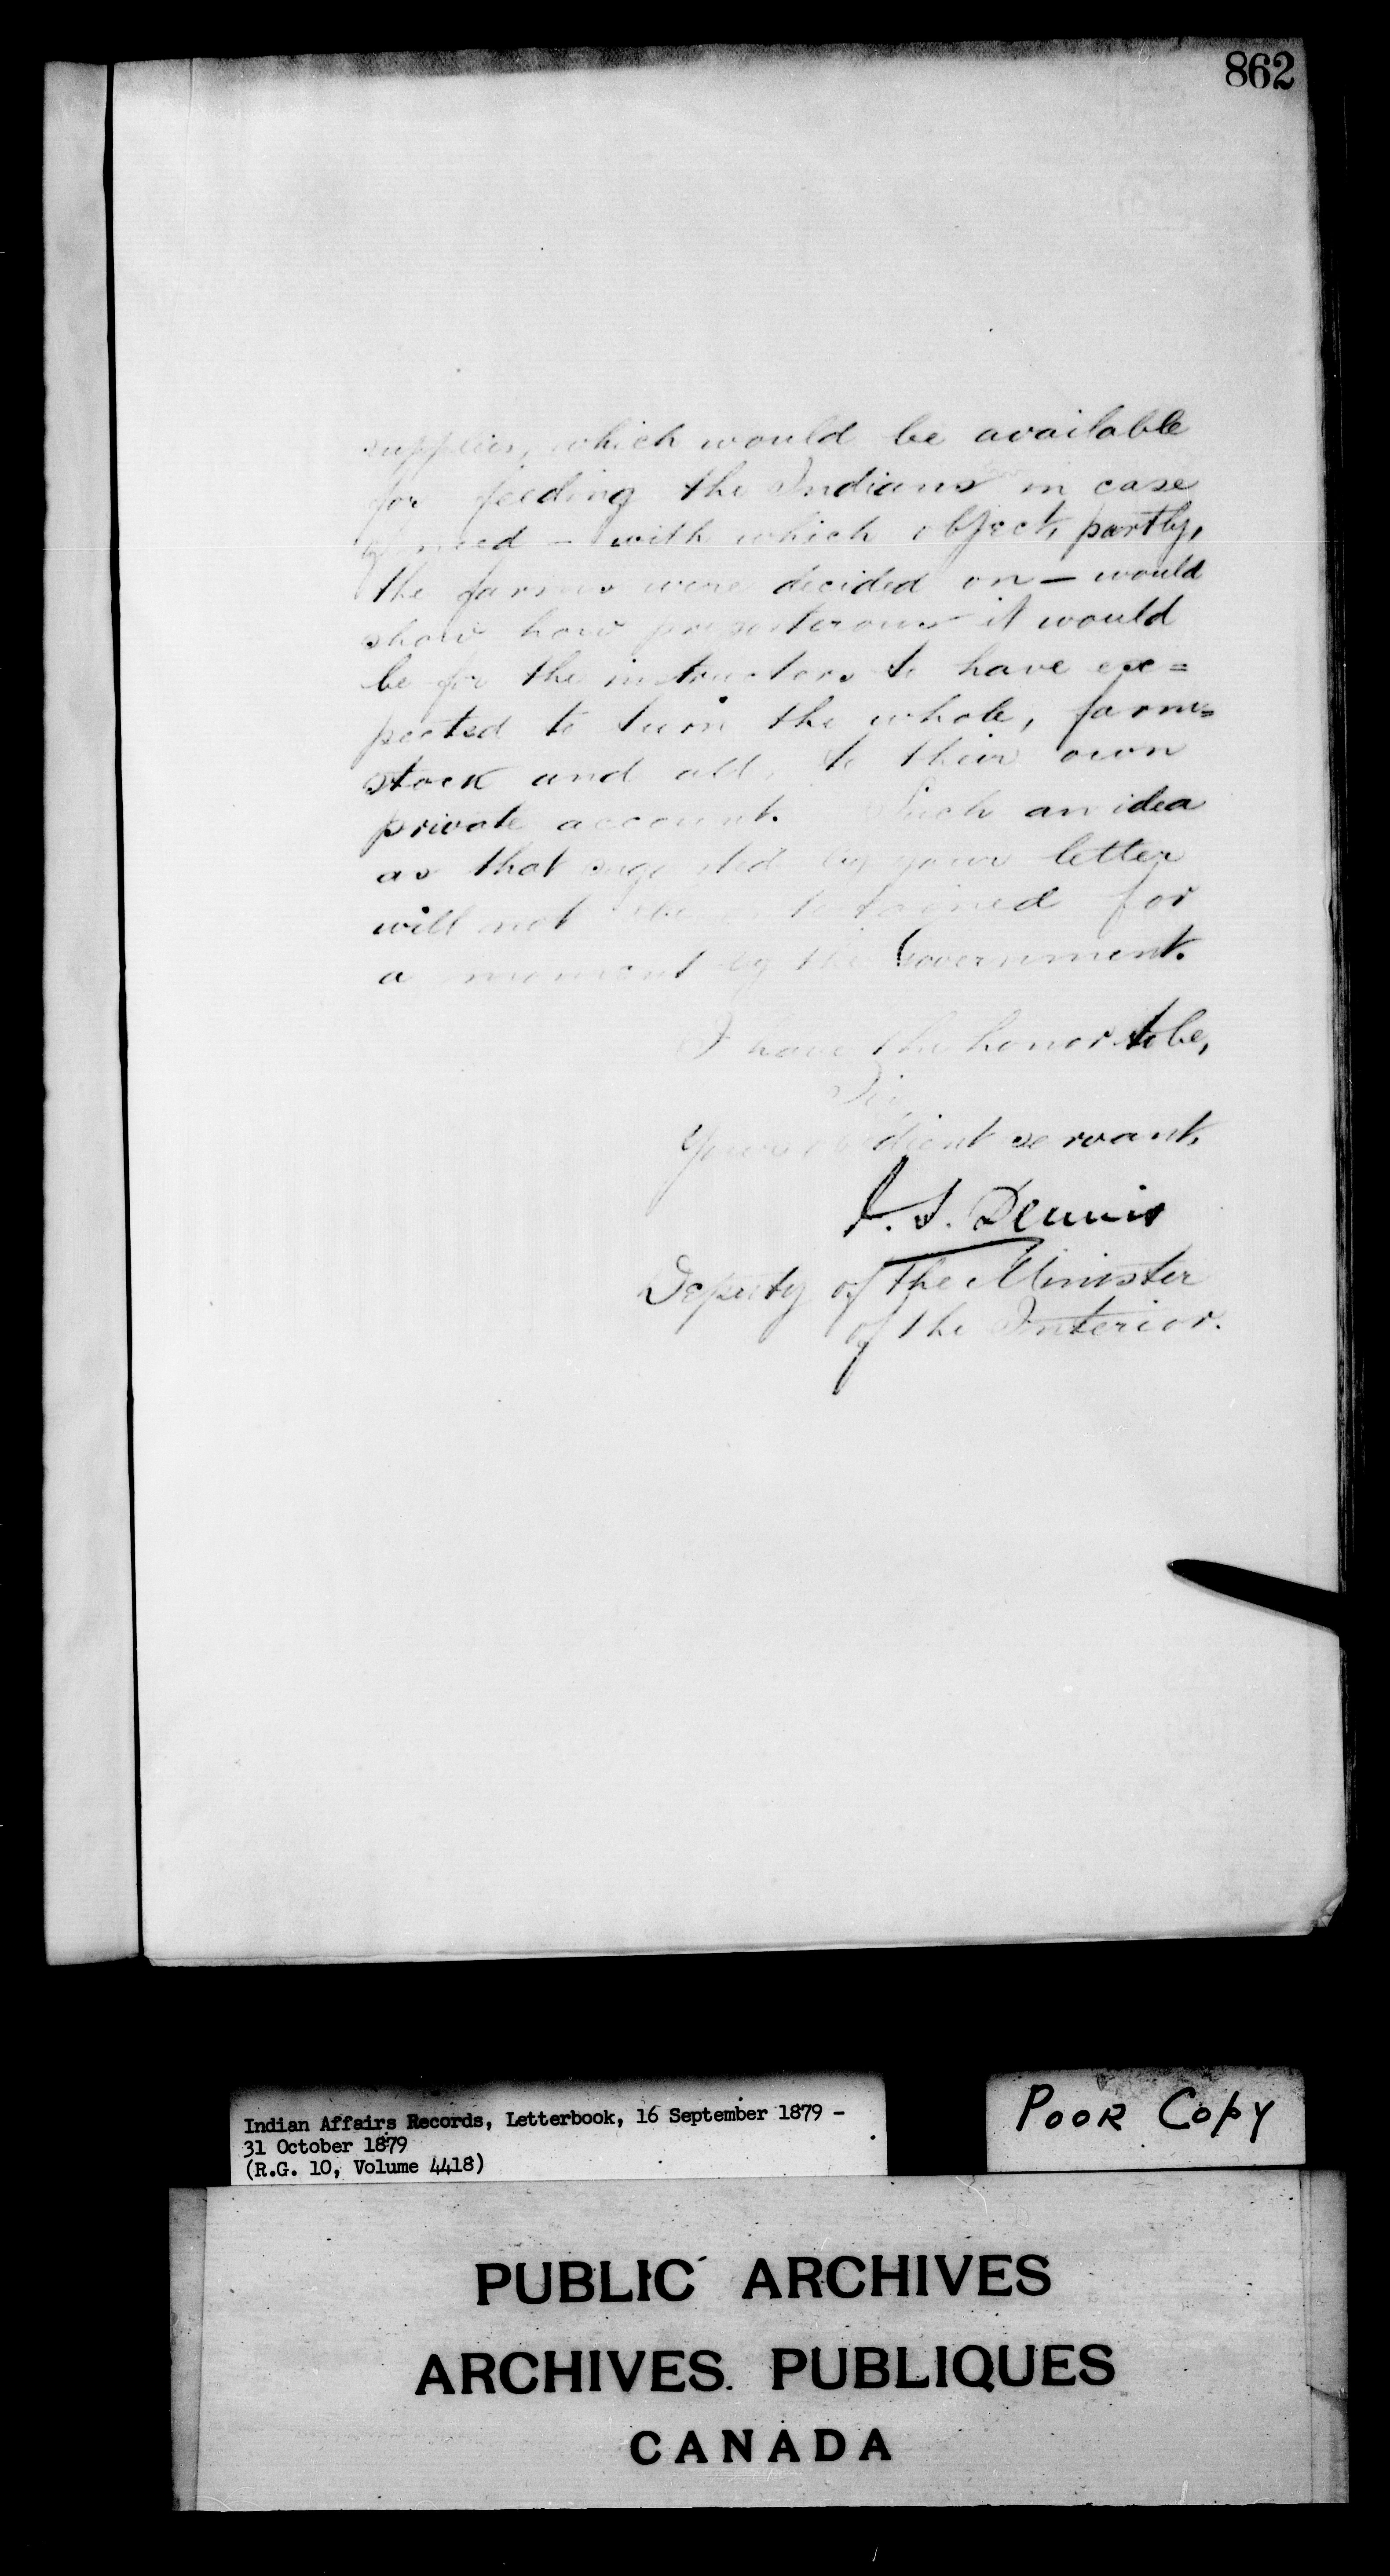 862
supplies, which would be available
for feeding the Indians in case
of need - with which object, partly,
the farms were decided on - would
show how preposterous it would
be for the instructors to have ex=
pected to turn the whole, farm=
stock and all, to their own
private account. Such an idea
as that suggested by your letter
will not be entertained for
a moment by the Government.
I have the honor to be,
Sir
Your obedient servant,
J. S. Dennis
Deputy of the Minister
of the Interior.
Indian Affairs Records, Letterbook, 16 September 1879 -
31 October 1879
(R.G. 10, Volume 4418)
POOR COPY
PUBLIC ARCHIVES
ARCHIVES PUBLIQUES
CANADA